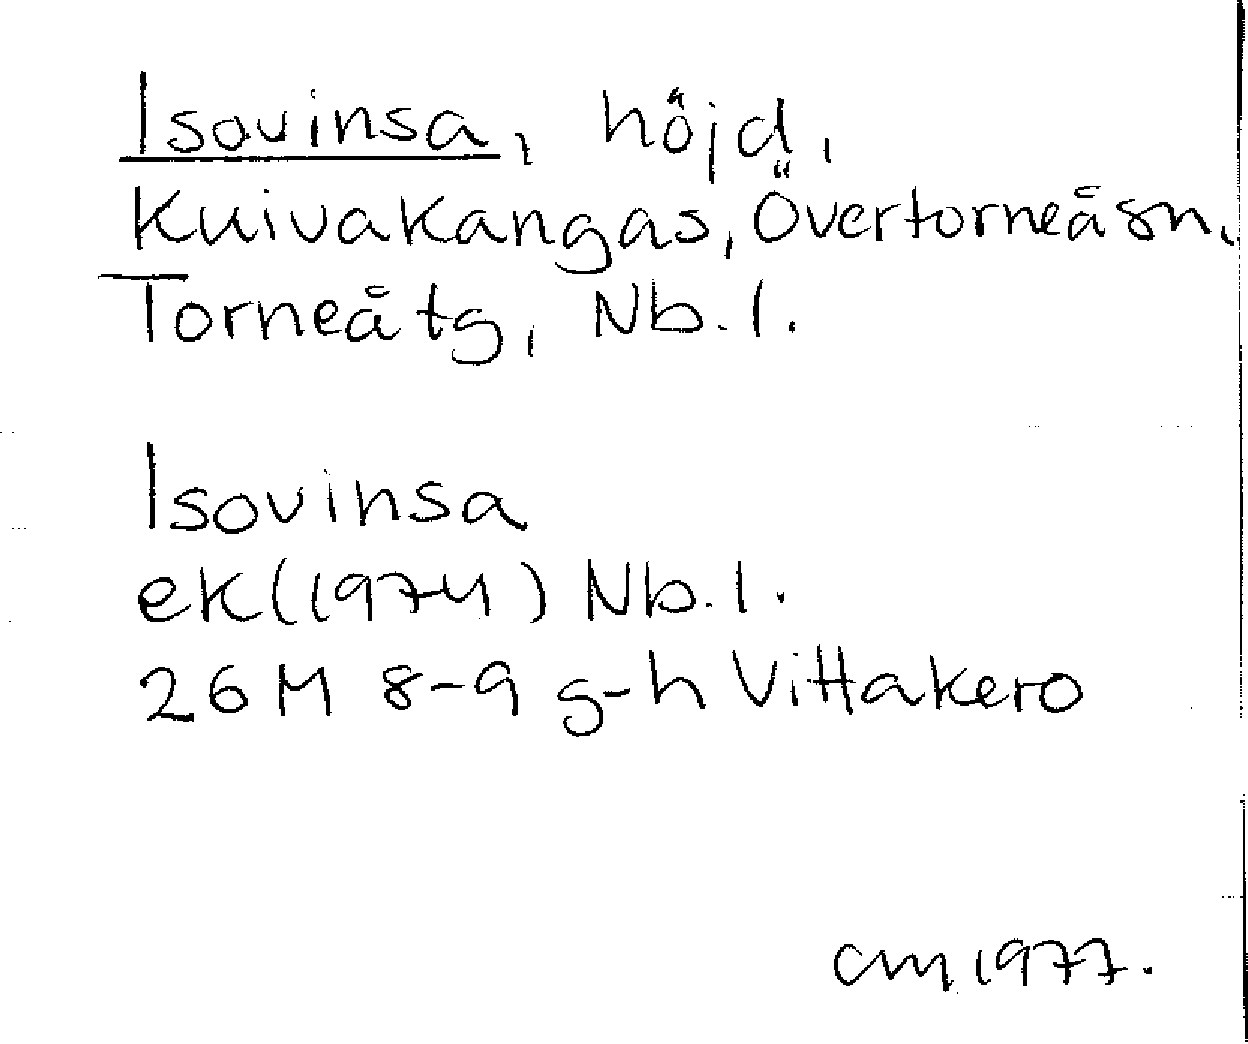 Isovinsa, höjd,
Kuivakangas, Övertorneå sn,
Torneå tg, Nb. l.
Isovinsa
ek (1974) Nb. l.
26 M 8-9 g-h Vittakero
CM 1977.